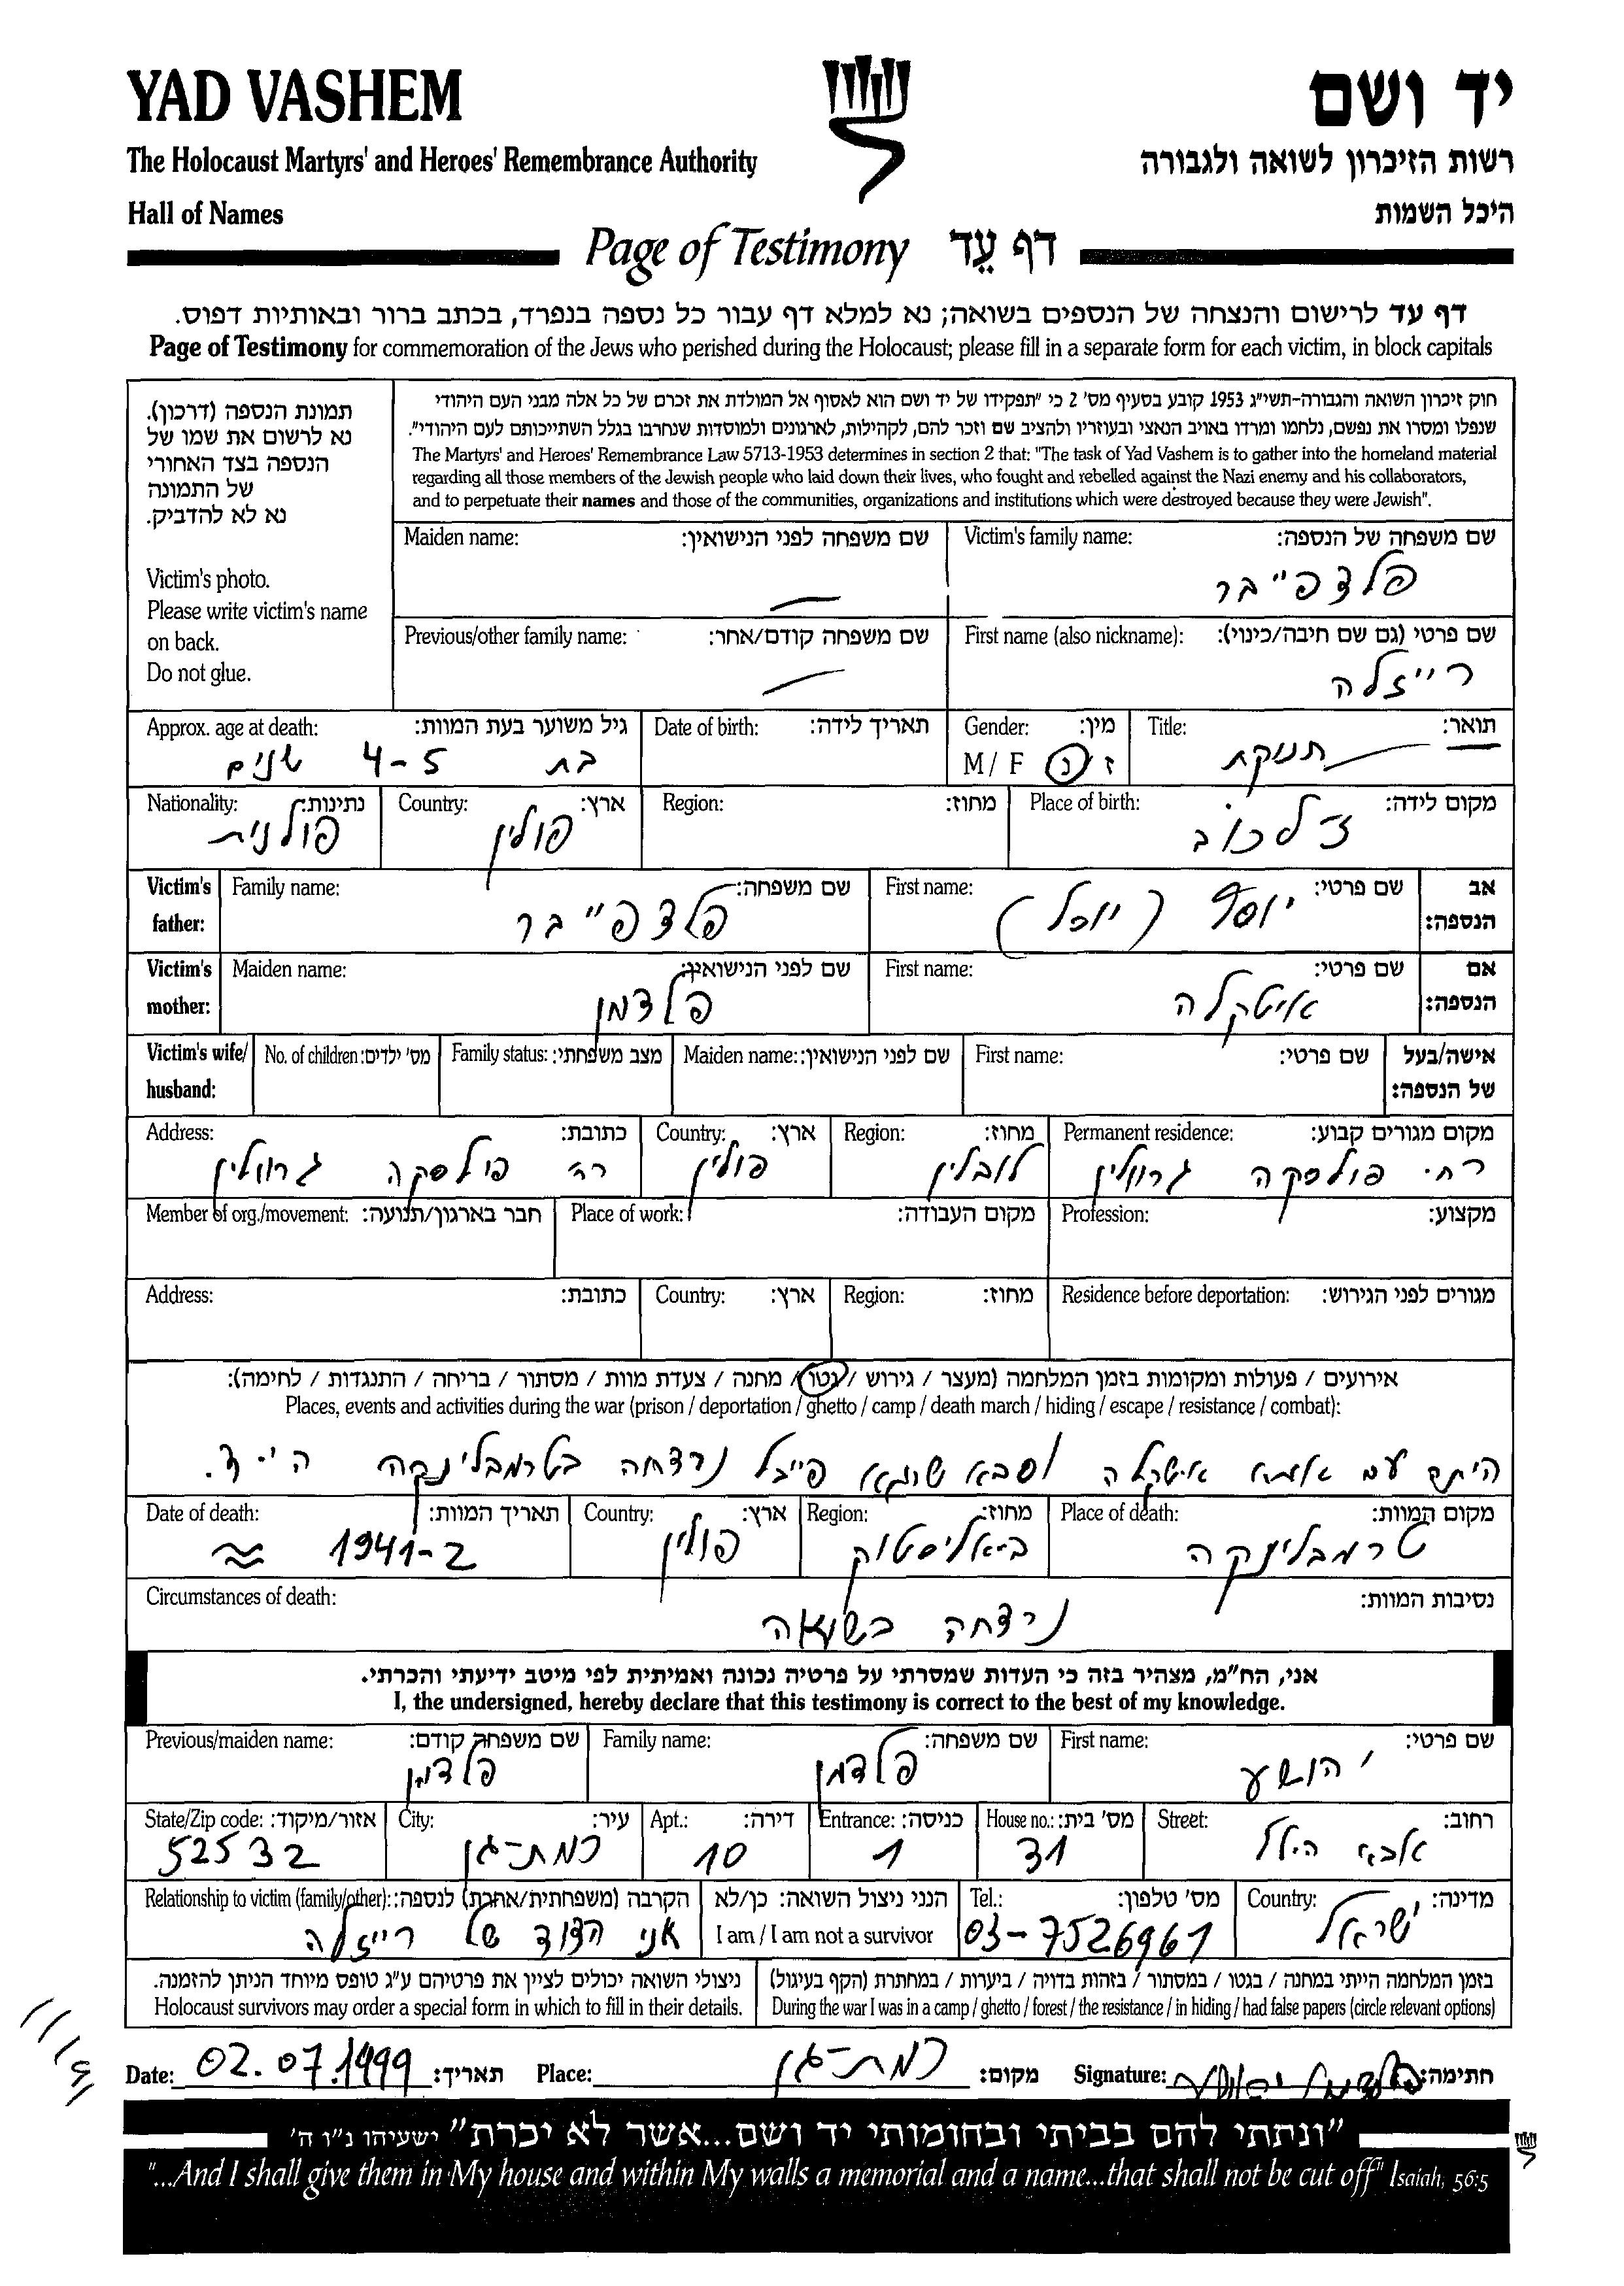 YAD VASHEM
יד ושם
The Holocaust Martyrs' and Heroes' Remembrance Authority
רשות הזיכרון לשואה ולגבורה
Hall of Names
היכל השמות
Page of Testimony דף עֵד
דף עד לרישום והנצחה של הנספים בשואה; נא למלא דף עבור כל נספה בנפרד, בכתב ברור ובאותיות דפוס.
Page of Testimony for commemoration of the Jews who perished during the Holocaust; please fill in a separate form for each victim, in block capitals
תמונת הנספה (דרכון).
נא לרשום את שמו של
הנספה בצד האחורי
של התמונה
נא לא להדביק.
Victim's photo.
Please write victim's name
on back.
Do not glue.
חוק זיכרון השואה והגבורה-תשי"ג 1953 קובע בסעיף מס' 2 כי "תפקידו של יד ושם הוא לאסוף אל המולדת את זכרם של כל אלה מבני העם היהודי
שנפלו ומסרו את נפשם, נלחמו ומרדו באויב הנאצי ובעוזריו ולהציב שם וזכר להם, לקהילות, לארגונים ולמוסדות שנחרבו בגלל השתייכותם לעם היהודי".
The Martyrs' and Heroes' Remembrance Law 5713-1953 determines in section 2 that: "The task of Yad Vashem is to gather into the homeland material
regarding all those members of the Jewish people who laid down their lives, who fought and rebelled against the Nazi enemy and his collaborators,
and to perpetuate their names and those of the communities, organizations and institutions which were destroyed because they were Jewish".
שם משפחה של הנספה: Victim's family name:
פלדפייבר
שם משפחה לפני הנישואין: Maiden name:
—
שם פרטי (גם שם חיבה/כינוי): First name (also nickname):
רייזלה
שם משפחה קודם/אחר: Previous/other family name:
—
תואר: Title:
תנוקת
מין: Gender:
ז / נ M / F
תאריך לידה: Date of birth:
גיל משוער בעת המוות: Approx. age at death:
בת 4-5 שנים
מקום לידה: Place of birth:
ז'לכוב
מחוז: Region:
ארץ: Country:
פולין
נתינות: Nationality:
פולנית
אב הנספה: Victim's father:
שם פרטי: First name:
יוסף (יוכל)
שם משפחה: Family name:
פלדפייבר
אם הנספה: Victim's mother:
שם פרטי: First name:
איטקלה
שם לפני הנישואין: Maiden name:
פלדמן
אישה/בעל של הנספה: Victim's wife/husband:
שם פרטי: First name:
שם לפני הנישואין: Maiden name:
מצב משפחתי: Family status:
מס' ילדים: No. of children:
מקום מגורים קבוע: Permanent residence:
רח' פולסקה גרוולין
מחוז: Region:
לובלין
ארץ: Country:
פולין
כתובת: Address:
רח' פולסקה גרוולין
מקצוע: Profession:
מקום העבודה: Place of work:
חבר בארגון/תנועה: Member of org./movement:
מגורים לפני הגירוש: Residence before deportation:
מחוז: Region:
ארץ: Country:
כתובת: Address:
אירועים / פעולות ומקומות בזמן המלחמה (מעצר / גירוש / גטו / מחנה / צעדת מוות / מסתור / בריחה / התנגדות / לחימה):
Places, events and activities during the war (prison / deportation / ghetto / camp / death march / hiding / escape / resistance / combat):
עם אמא וסבא פייבל נרצחה בטרמבלינקה הי"ד.
מקום המוות: Place of death:
טרמבלינקה
מחוז: Region:
ביאליסטוק
ארץ: Country:
פולין
תאריך המוות: Date of death:
1941-2 ≈
נסיבות המוות: Circumstances of death:
נרצחה בשואה
אני, הח"מ, מצהיר בזה כי העדות שמסרתי על פרטיה נכונה ואמיתית לפי מיטב ידיעתי והכרתי.
I, the undersigned, hereby declare that this testimony is correct to the best of my knowledge.
שם פרטי: First name:
יהושע
שם משפחה: Family name:
פלדמן
שם משפחה קודם: Previous/maiden name:
פלדמן
רחוב: Street:
אבא הלל
מס' בית: House no.:
31
כניסה: Entrance:
1
דירה: Apt.:
10
עיר: City:
רמת-גן
אזור/מיקוד: State/Zip code:
52532
מדינה: Country:
ישראל
מס' טלפון: Tel.:
03-7526961
הנני ניצול השואה: כן/לא
I am / I am not a survivor
הקרבה (משפחתית/אחרת) לנספה: Relationship to victim (family/other):
אני הדוד של רייזלה
בזמן המלחמה הייתי במחנה / בגטו / במסתור / בזהות בדויה / ביערות / במחתרת (הקף בעיגול)
During the war I was in a camp / ghetto / forest / the resistance / in hiding / had false papers (circle relevant options)
ניצולי השואה יכולים לציין את פרטיהם ע"ג טופס מיוחד הניתן להזמנה.
Holocaust survivors may order a special form in which to fill in their details.
חתימה: פלדמן יהושע Signature:
מקום: רמת-גן Place:
תאריך: 02.07.1999 Date:
"ונתתי להם בביתי ובחומותי יד ושם...אשר לא יכרת" ישעיהו נ"ו ה'
"...And I shall give them in My house and within My walls a memorial and a name...that shall not be cut off" Isaiah, 56:5